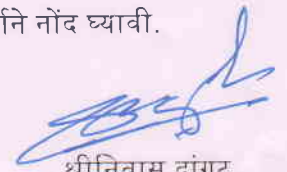 र्गाने नोंद घ्यावी.
श्रीनिवास दांगट